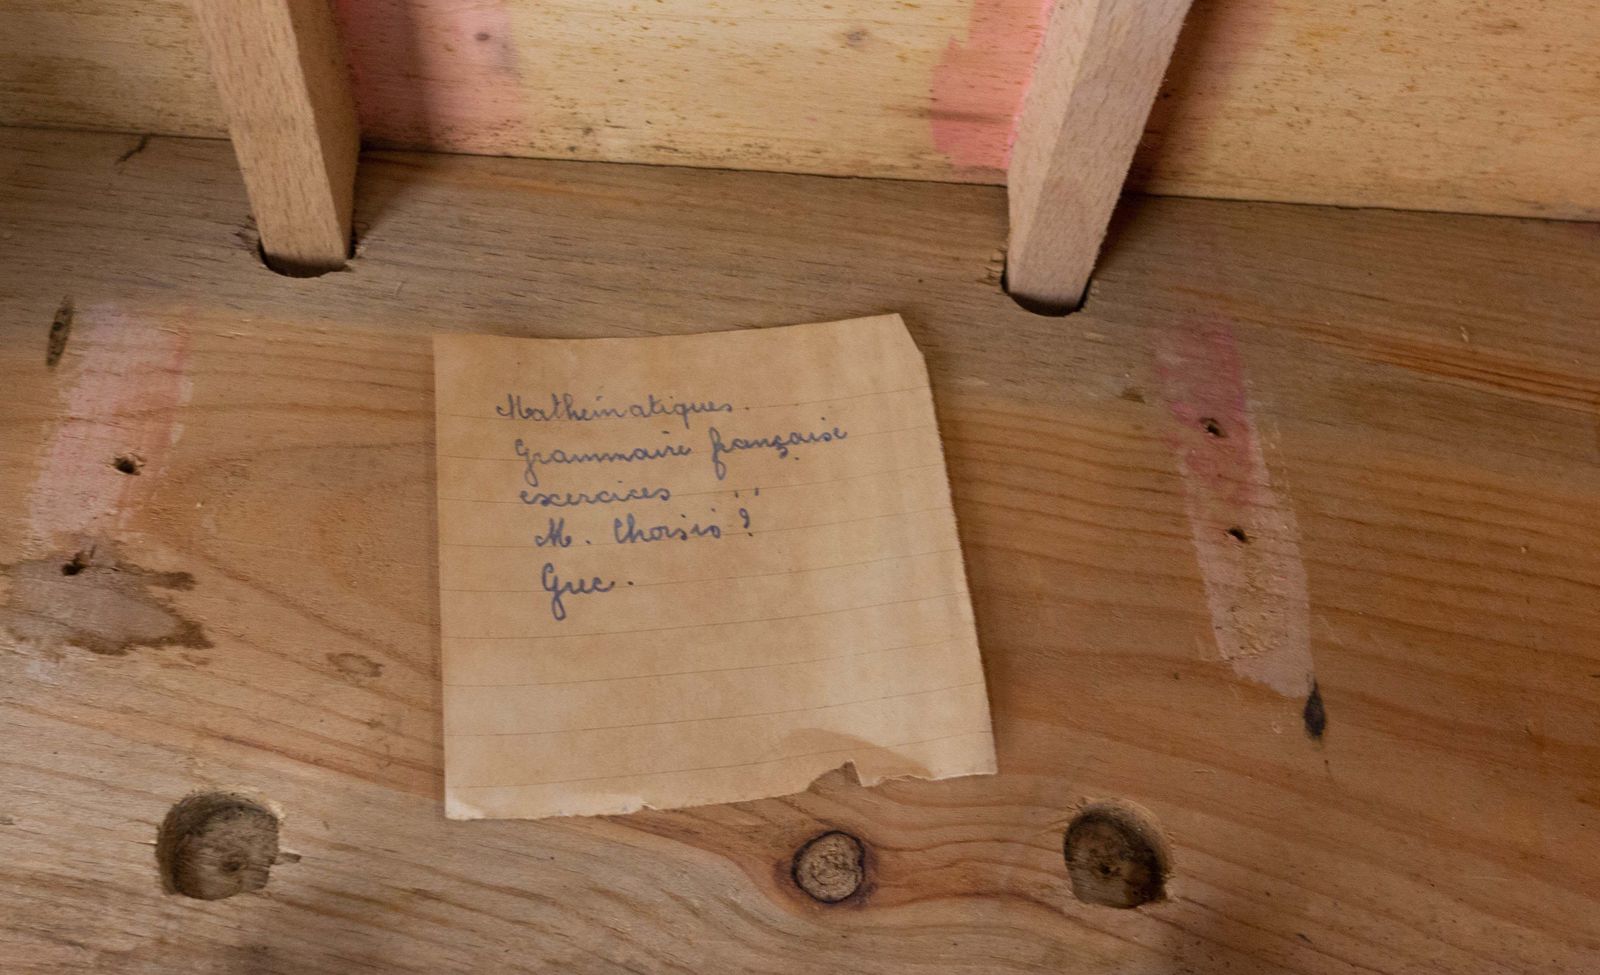 Mathématiques.
Grammaire française
exercices ''
M. Choisis ?
Grec.